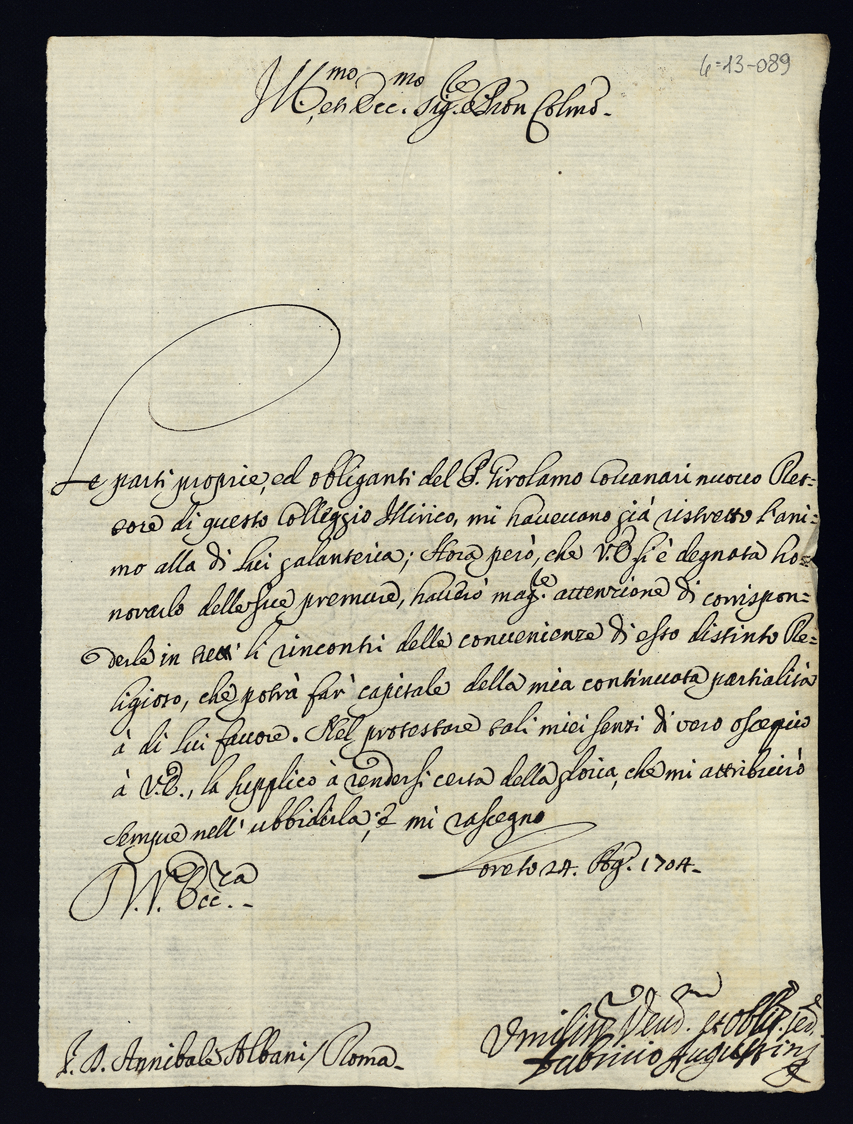 6-13-089
Ill.mo et Ecc.mo Sig.re e Pron Colmo.
Le parti proprie, ed obliganti del P. Girolamo nuovo Ret=
tore di questo Colleggio Illirico, mi havevano già ristretto l'ani=
mo alla di lui galanteria; Hora però, che V.E. si è degnata ho=
norarlo delle sue premure, haverò mag.re attenzione di corrispon=
derle in tutti li rincontri delle convenienze di esso distinto Re=
ligioso, che potrà far' capitale della mia continuata partialità
à di lui favore. Nel protestare tali miei senzi di vero ossequio
à V.E., la supplico à rendersi certa della gloria, che mi attribuirò
sempre nell' ubbidirla; e mi rassegno
Loreto 24. Ag. 1704.
D. V. Ecc.za
Umiliss. Dev. et obblig.
Fabritio Augustini
D. Annibale Albani / Roma